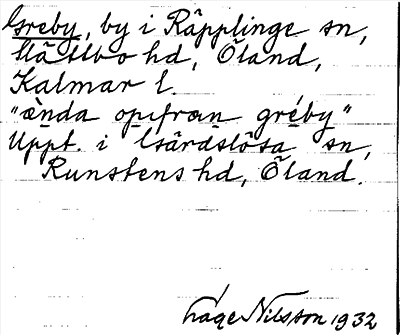 Greby, by i Räpplinge sn,
Slättbo hd, Öland,
Kalmar l.
"ända opifran greby"
Uppt. i Gärdslösa sn,
Runstens hd, Öland.
Nilsson 1932